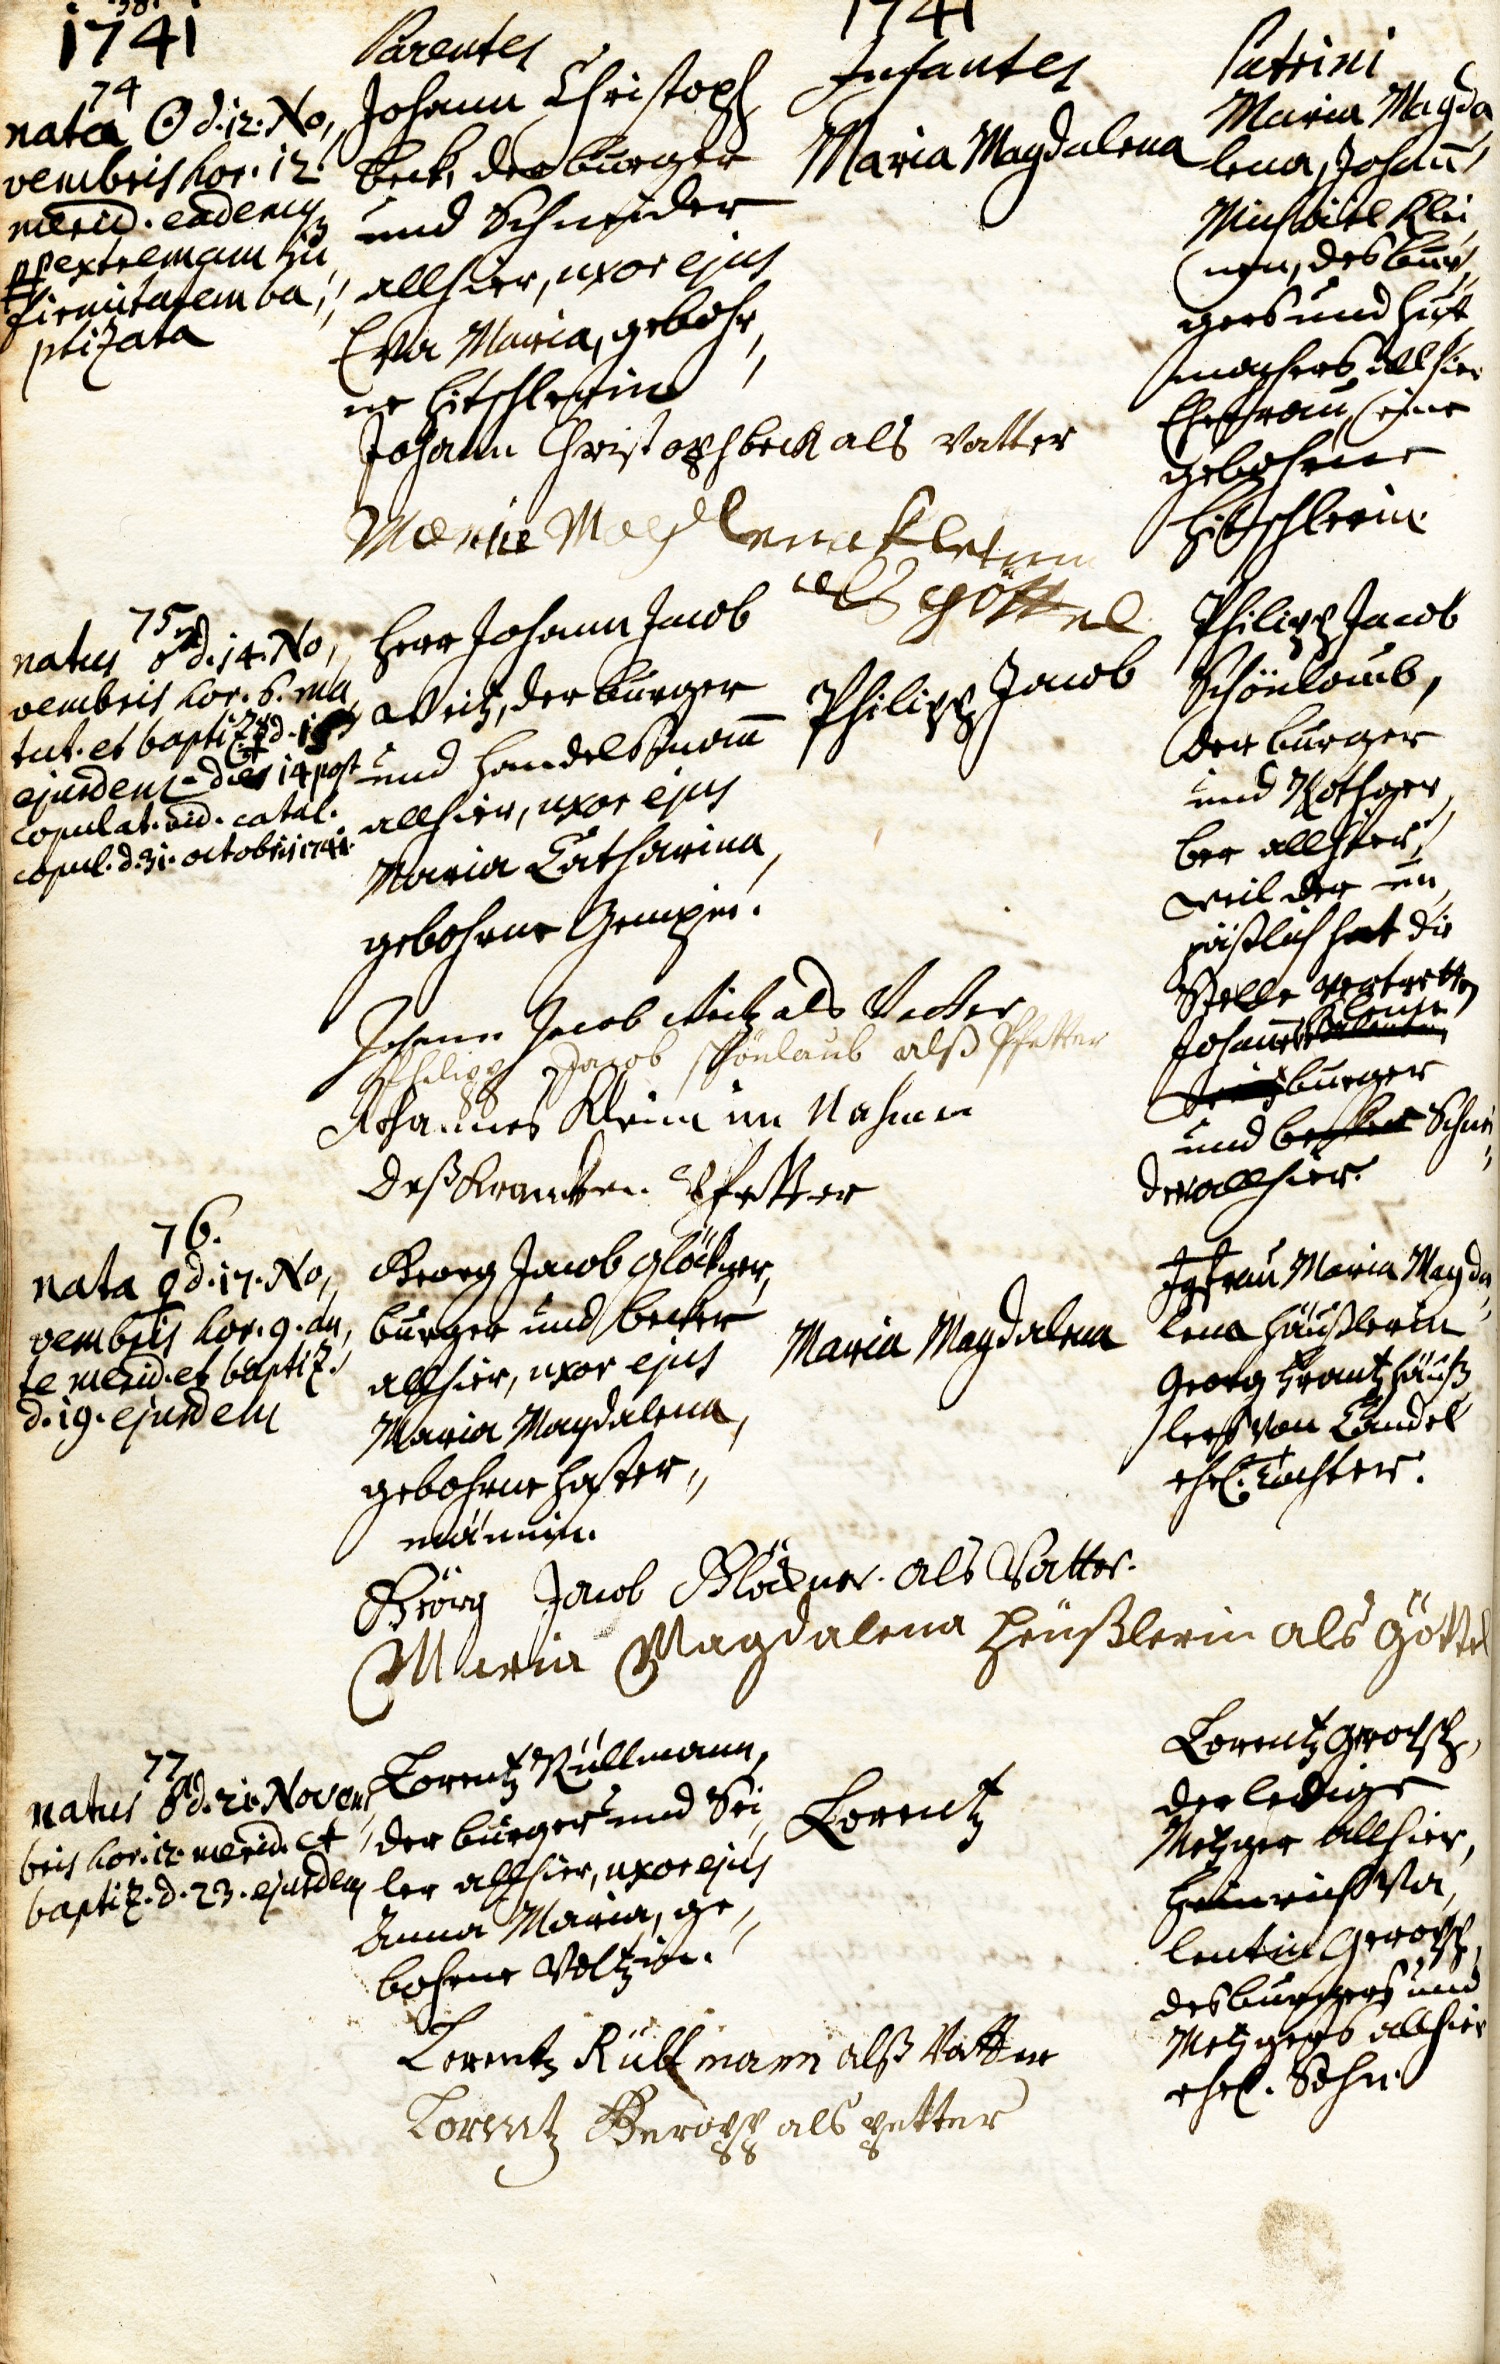 1741
1741
Parentes
Infantes
Patrini
74
nata ☉ d. 12. No,
vembris hor. 12
merid. eadem
extremam in
firmitatem ba,
ptizata
Johann Christoph
Beck, der burger
und Schneider
allhier, uxor ejus
Eva Maria, gebohr,
ne Hitschlerin
Maria Magdalena
Maria Magda
lena, Johann
Michael Klei
nen, des bur,
gers und Hut
machers allhier
Ehefrau, eine
gebohrne
Hitschlerin.
Johann Christoph beck als Vatter
Maria Magdlena Kleinin
als göttel
75
natus ♂ d. 14. No,
vembris hor. 6. ma
tut. et baptiz. d. 15
ejusdem = dies 14 post
copulat. vid. catal.
copul. d. 31. octobris 1741.
Herr Johann Jacob
Weitz, der burger
und Handelßmann
allhier, uxor ejus
Maria Catharina,
gebohrne Gempin.
Philipp Jacob
Philipp Jacob
Schönlaub,
der burger
und Rothger,
ber allhier,
weil der un,
päßlich hat die
Stelle vertretten
Johannes Klein,
burger
und Schnei
der allhier.
Johann Jacob Weitz als Vatter
Philipp Jacob schönlaub alß Pfetter
Johannes Klein im Nahmen
deß Krancken Pfetter
76.
nata ♀ d. 17. No,
vembris hor. 9. an,
te merid. et baptiz.
d. 19. ejusdem
Georg Jacob Glöckner,
burger und becker
allhier, uxor ejus
Maria Magdalena,
gebohrne Haster,,
männin.
Maria Magdalena
Jgfrau Maria Magda
lena Häußlerin
Georg Frantz Häuß
lers von Candel
ehel. Tochter.
Georg Jacob Glöckner als Vatter.
Maria Magdalena Heüßlerin als Göttel
77
natus ♂ d. 21. Novem
bris hor. 12. merid. et
baptiz. d. 23. ejusdem
Lorentz Rüllmann,
der burger und Sei,
ler allhier, uxor ejus
Anna Maria, ge,,
bohrne Voltzin.
Lorentz
Lorentz Gropp,
der ledige
Metzger allhier,
Heinrich Va,
lentin Gropp,
des burgers und
Metzgers allhier
ehel. Sohn
Lorentz Rüllmann alß Vatter
Lorentz Geropp als petter